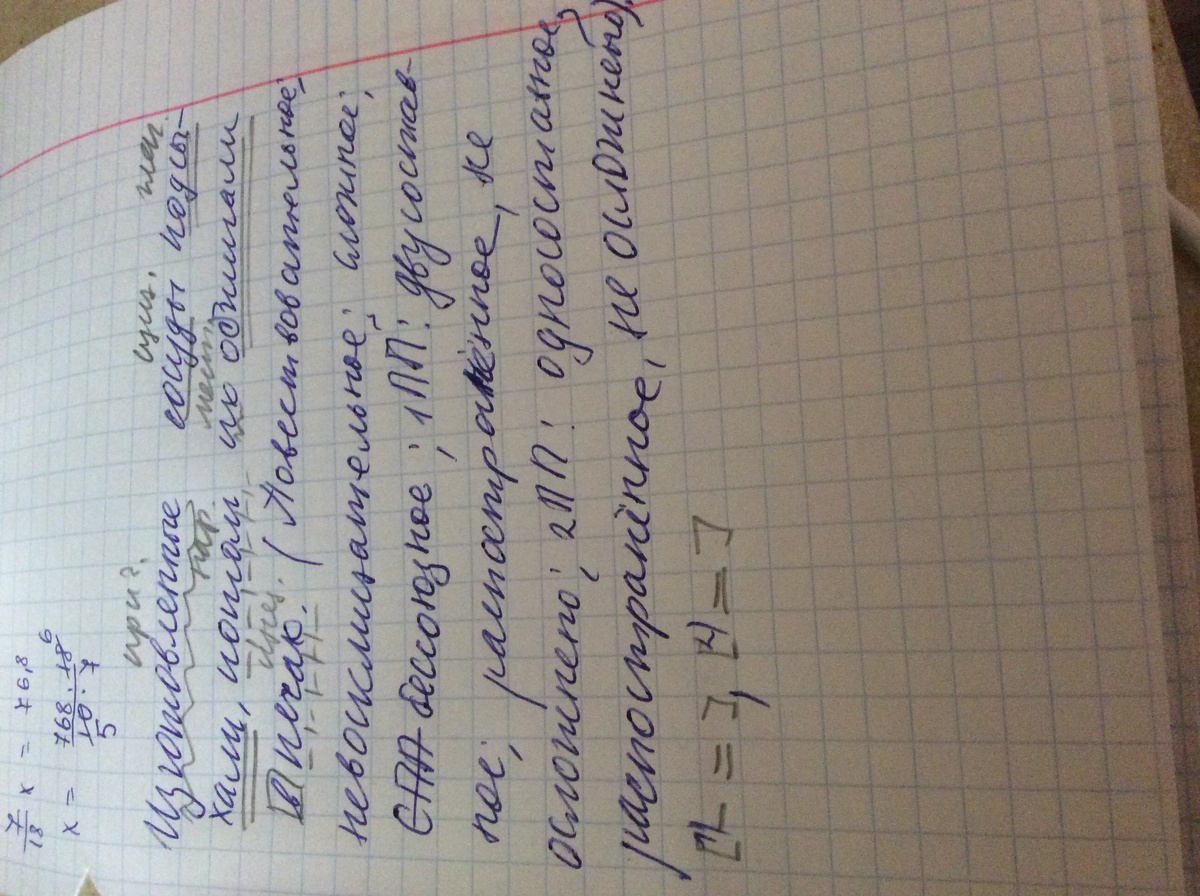 7/18 x = 76,8
x = 768 · 18 6 / 10 · 7
5
сущ.
Изготовленные сосуды подсы-
мест.
хали, потом их обжигали
в печах. (Повествовательное;
невосклицательное; сложное;
СПП бессоюзное; 1ПП: двусостав-
ное; распостранённое, не
осложнено; 2ПП: односоставное,
распостранённое, не осложнено).
[1— =], [2 =]